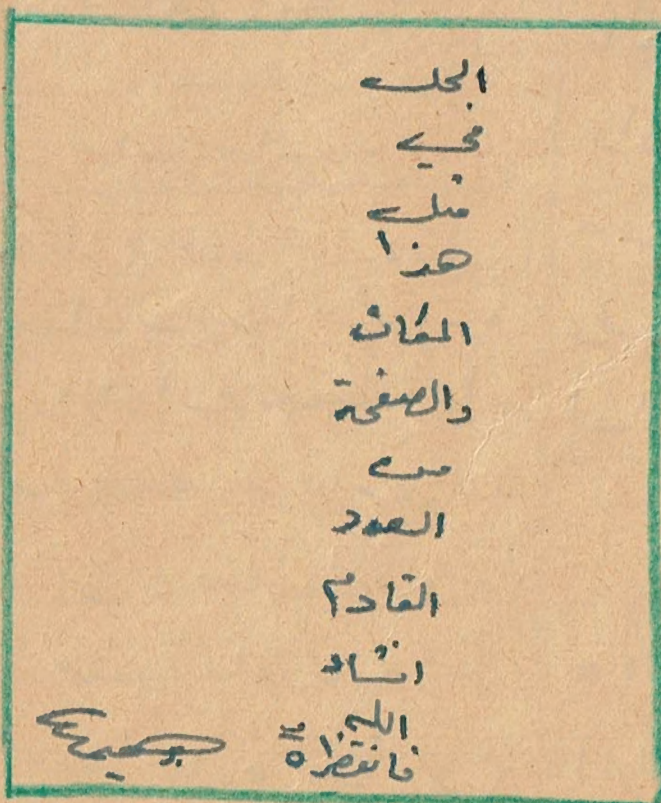 الحل
في
مثل
هذا
المكان
والصفحة
من
العدد
القادم
انشاء
الله
فانتظرة